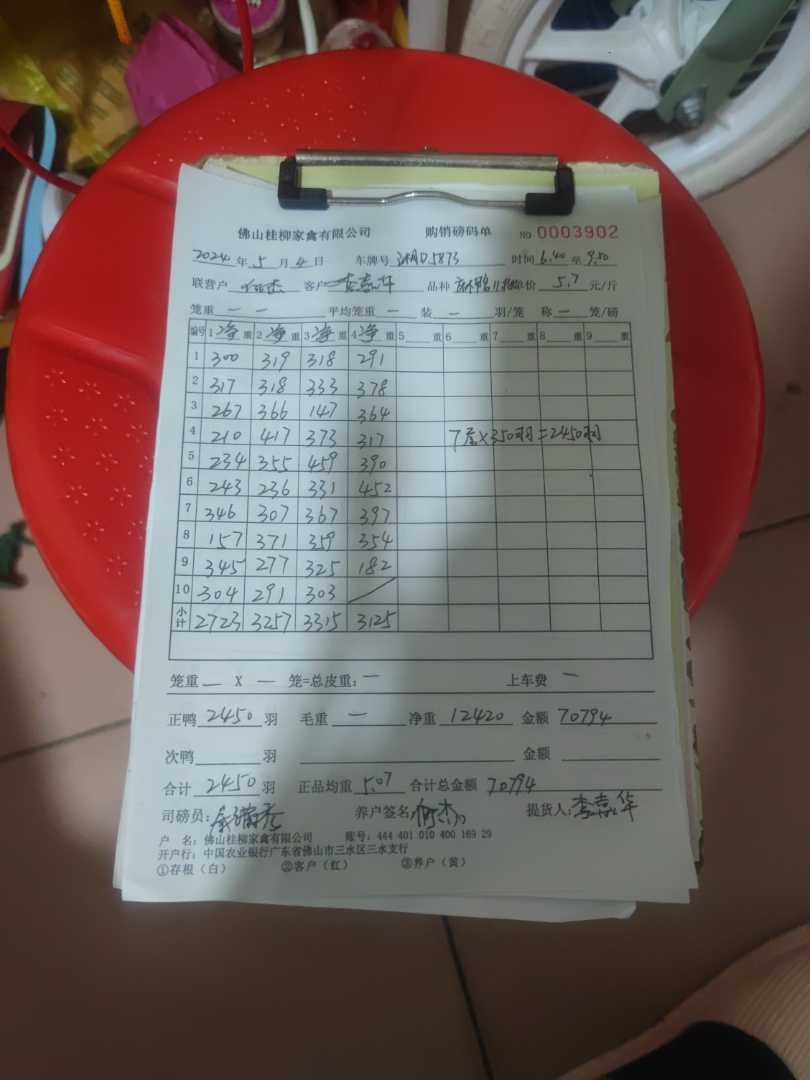 佛山桂柳家禽有限公司 购销磅码单 NO 0003902
2024年5月4日 车牌号 湘D5873 时间6.40至9.50
联营户 何杰 客户 李嘉华 品种 单价 5.7 元/斤
笼重 一 一 平均笼重 一 装 一 羽/笼 称 一 笼/磅
编号 1净重 2净重 3净重 4净重 5重 6重 7重 8重 9重
1 300 319 318 291
2 317 318 333 378
3 267 366 147 364
4 210 417 373 317 7 ×350羽=2450羽
5 234 355 459 390
6 243 236 331 452
7 346 307 367 397
8 157 371 359 354
9 345 277 325 182
10 304 291 303 /
小计 2723 3257 3315 3125
笼重 一 X 一 笼=总皮重: 一 上车费 一
正鸭 2450 羽 毛重 一 净重 12420 金额 70794
次鸭 羽 金额
合计 2450 羽 正品均重 5.07 合计总金额 70794
司磅员: 养户签名 何杰 提货人: 李嘉华
户 名: 佛山桂柳家禽有限公司 账号: 444 401 010 400 169 29
开户行: 中国农业银行广东省佛山市三水区三水支行
①存根(白) ②客户(红) ③养户(黄)